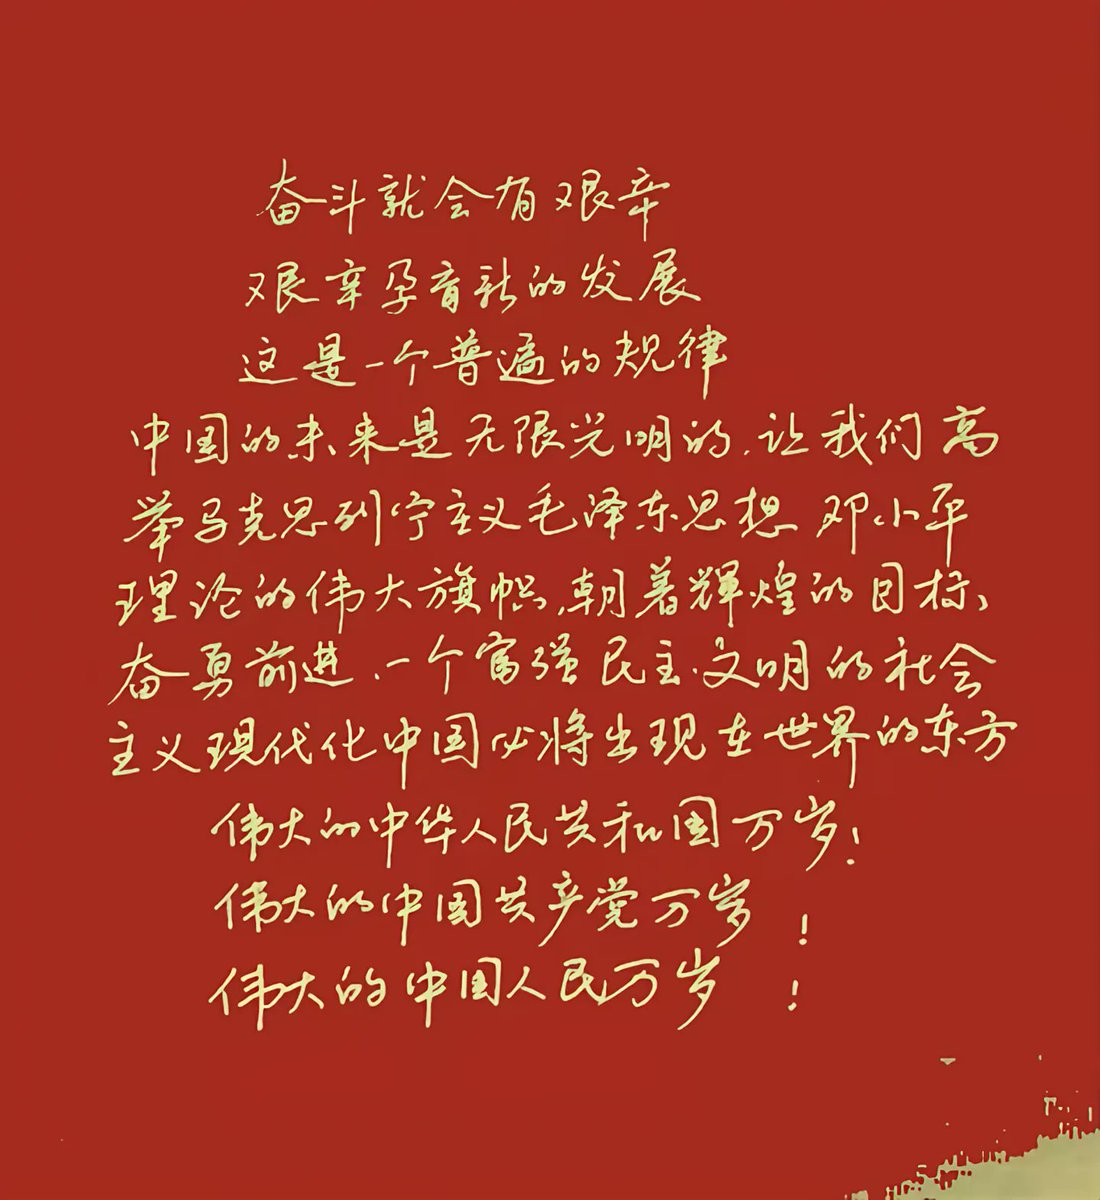 奋斗就会有艰辛
艰辛孕育新的发展
这是一个普遍的规律
中国的未来是无限光明的.让我们高
举马克思列宁主义毛泽东思想 邓小平
理论的伟大旗帜,朝着辉煌的目标、
奋勇前进.一个富强民主.文明的社会
主义现代化中国必将出现在世界的东方
伟大的中华人民共和国万岁!
伟大的中国共产党万岁!
伟大的中国人民万岁!